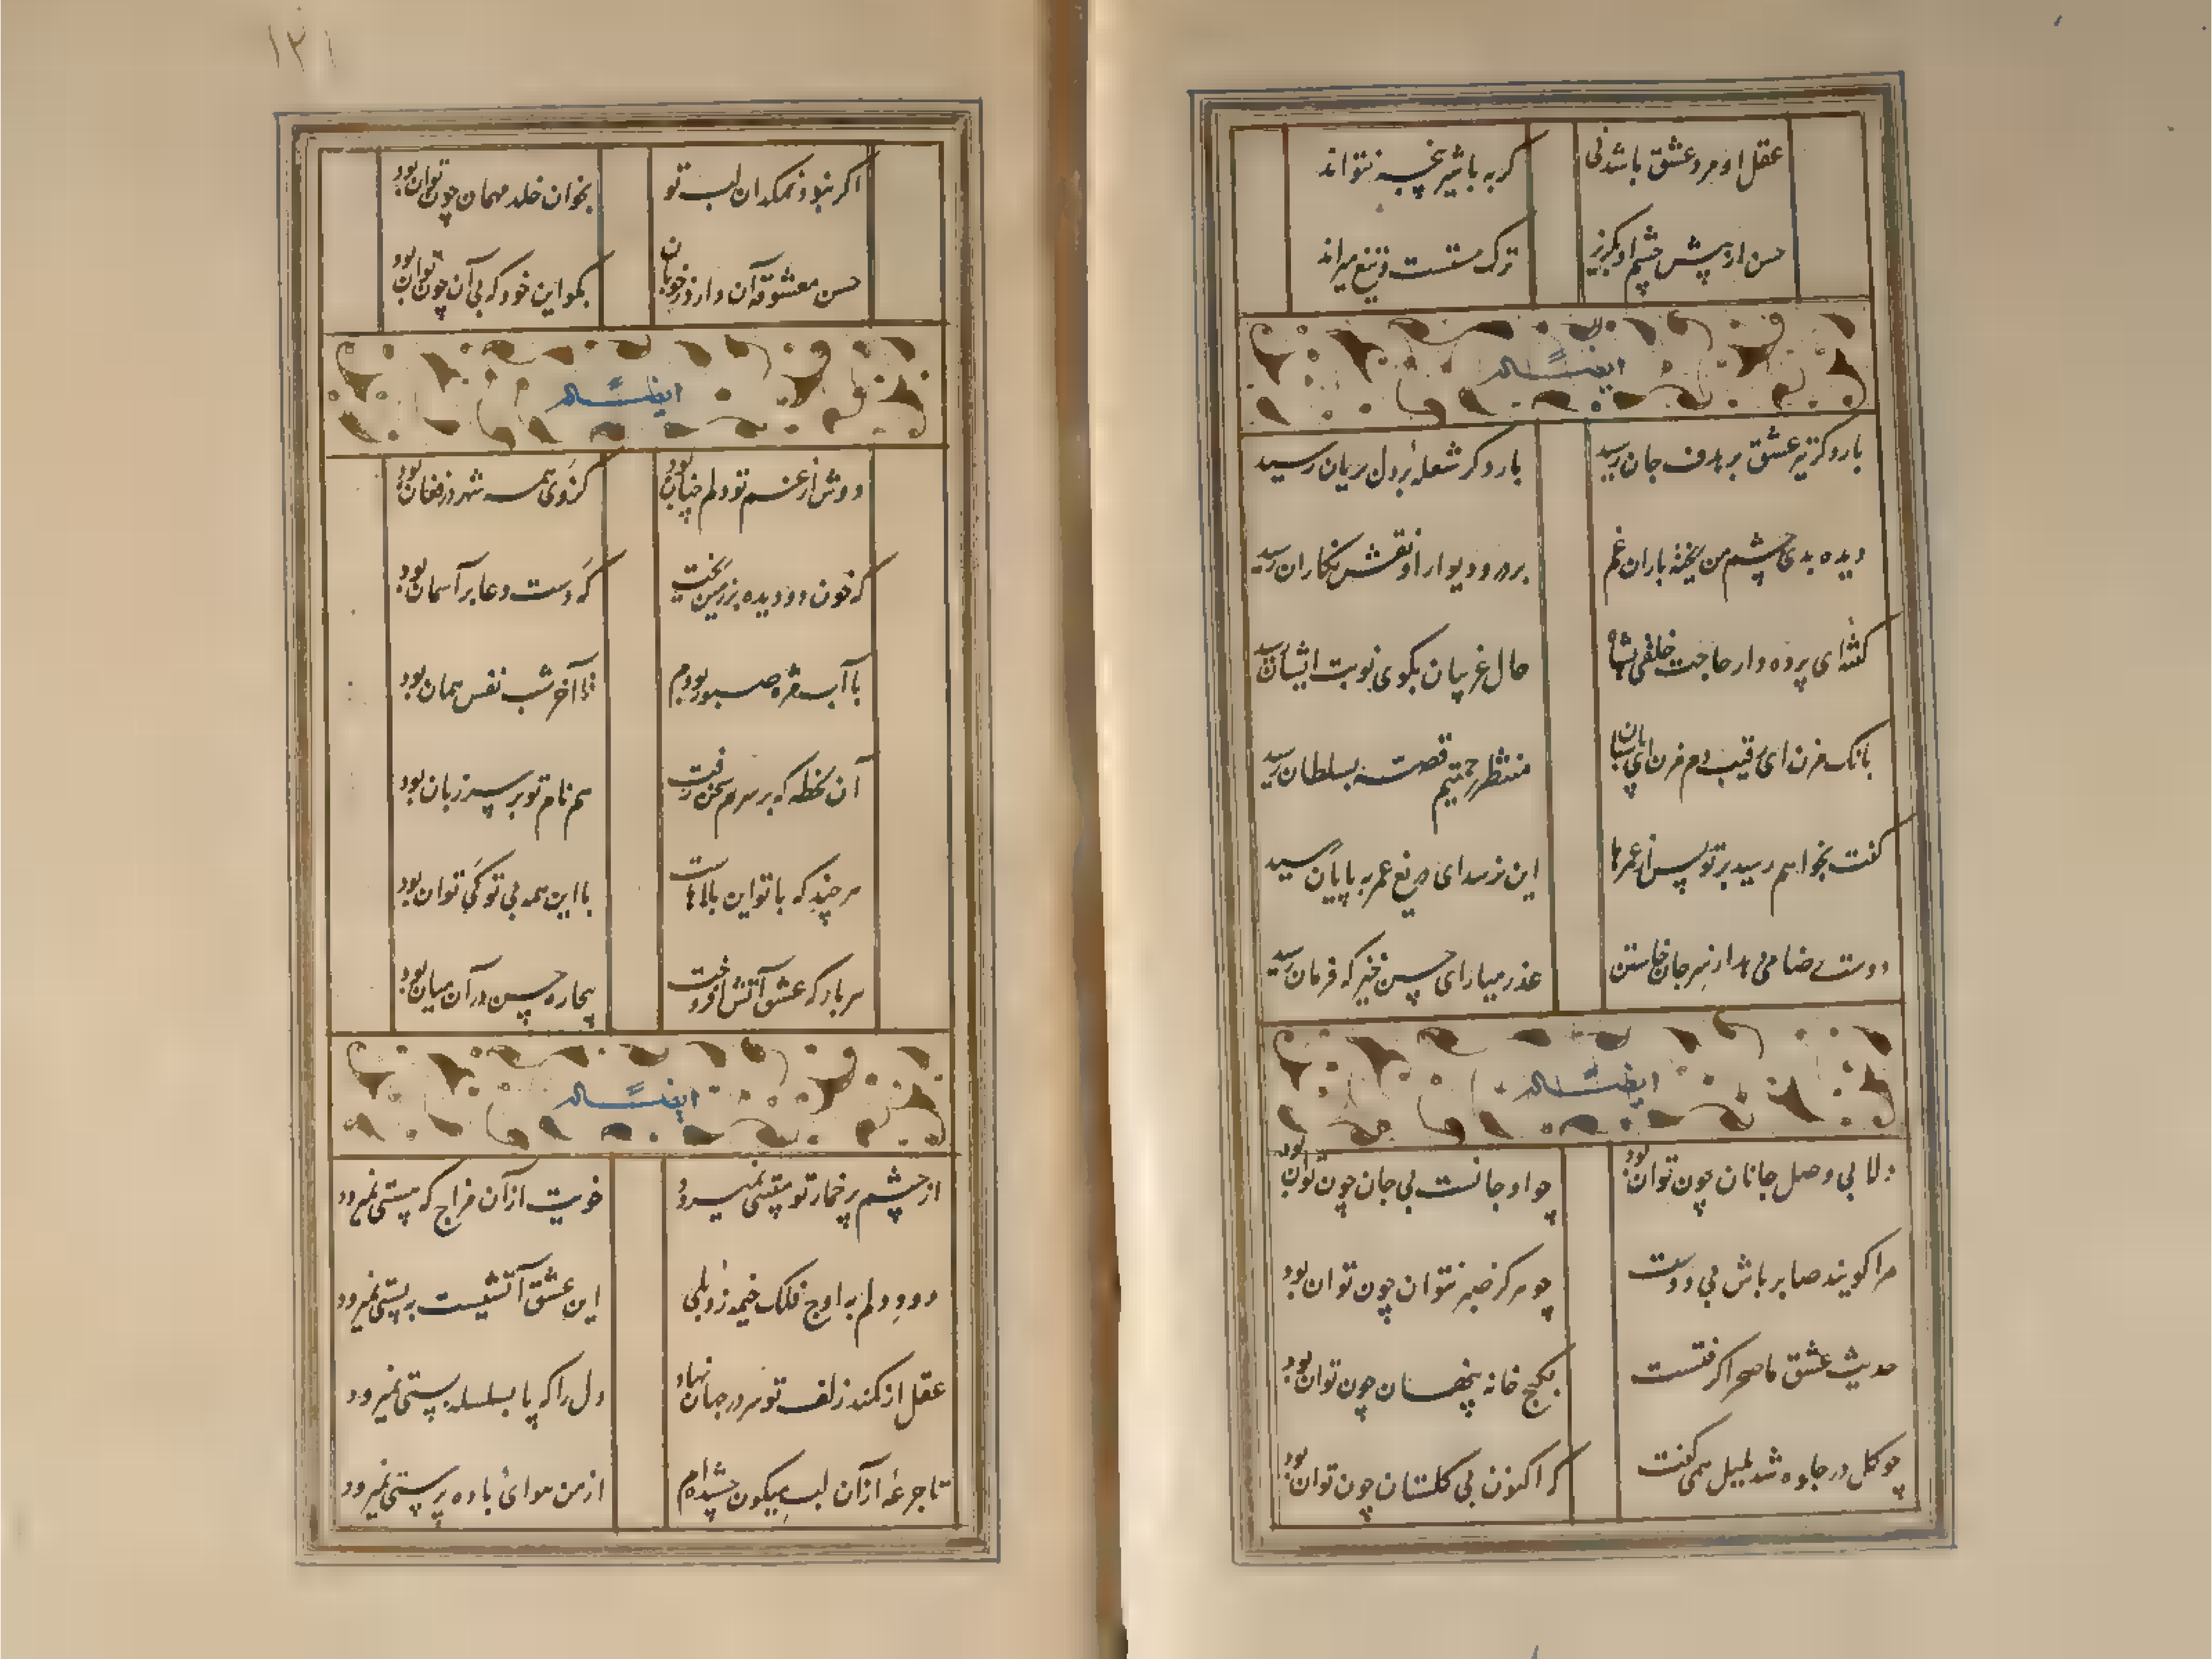 عقل او مرد عشق باشد نی
کربه با شیر پنجه نتواند
حسن از پیش چشم او بگریز
ترک مستست و تیغ میراند
ایضاً له
بار دگر تیر عشق بر هدف جان رسید
بار دگر شعله بر دل بریان رسید
دیده بدی چشم من ریخته باران غم
بر در و دیوار او نقش نگاران رسید
کشته ای پرده دار حاجت خلقی
حال غریبان بگوی نوبت ایشان رسید
بانک مزن ای رقیب دم مزن ای پاسبان
منتظر رحمتیم قصه بسلطان رسید
کفت بخواهم رسید بر تو پس از عمرها
این نرسد ای دریغ عمر به پایان رسید
دوست رضا می دهد از سر جان خاستن
عذر میار ای حسن خیز که فرمان رسید
ایضاً له
دلا بی وصل جانان چون توان بود
چو او جانست بی جان چون توان بود
مرا کویند صابر باش بی دوست
چو هرکز صبر نتوان چون توان بود
حدیث عشق ما صحرا کرفتست
بکنج خانه پنهان چون توان بود
چو کل در جلوه شد بلبل همی کفت
که اکنون بی کلستان چون توان بود
۱۳۱
اکر نبود نمکدان لب تو
بخوان خلد مهمان چون توان بود
حسن معشوقه آن دارد ز خوبان
بکو این خود که بی آن چون توان بود
ایضاً له
دوش از غم تو دلم چنان بود
کز وی همه شهر در فغان بود
که خون دو دیده بر زمین ریخت
که دست دعا بر آسمان بود
با آب مژه صبور بودم
تا آخر شب نفس همان بود
آن لحظه که بر سرم سخن رفت
هم نام تو بر سر زبان بود
هر چند که با تو این بلاهاست
با این همه بی تو کی توان بود
هر بار که عشق آتش افروخت
بیچاره حسن در آن میان بود
ایضاً له
از چشم پر خمار تو مستی نمیرود
خویت از آن مزاج که هستی نمیرود
دود دلم به اوج فلک خیمه زد بلی
این عشق آتشیست به پستی نمیرود
عقل از کمند زلف تو سر در جهان نهاد
دل را که پا بسلسله بستی نمیرود
تا جرعهٔ از آن لب میکون چشیده‌ام
از من هوای باده پرستی نمیرود